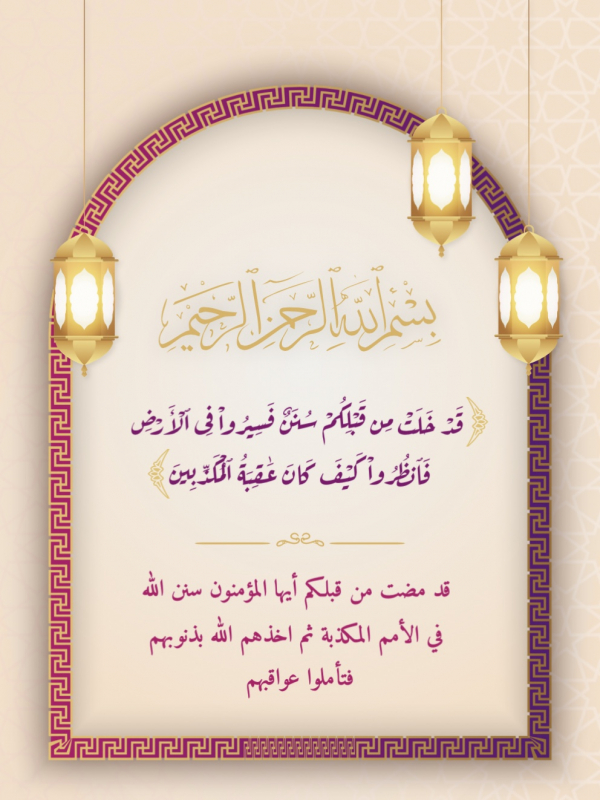 بِسْمِ ٱللَّهِ ٱلرَّحْمَٰنِ ٱلرَّحِيمِ
﴿قَدْ خَلَتْ مِن قَبْلِكُمْ سُنَنٌ فَسِيرُوا۟ فِى ٱلْأَرْضِ
فَٱنظُرُوا۟ كَيْفَ كَانَ عَٰقِبَةُ ٱلْمُكَذِّبِينَ﴾
قد مضت من قبلكم أيها المؤمنون سنن الله
في الأمم المكذبة ثم اخذهم الله بذنوبهم
فتأملوا عواقبهم